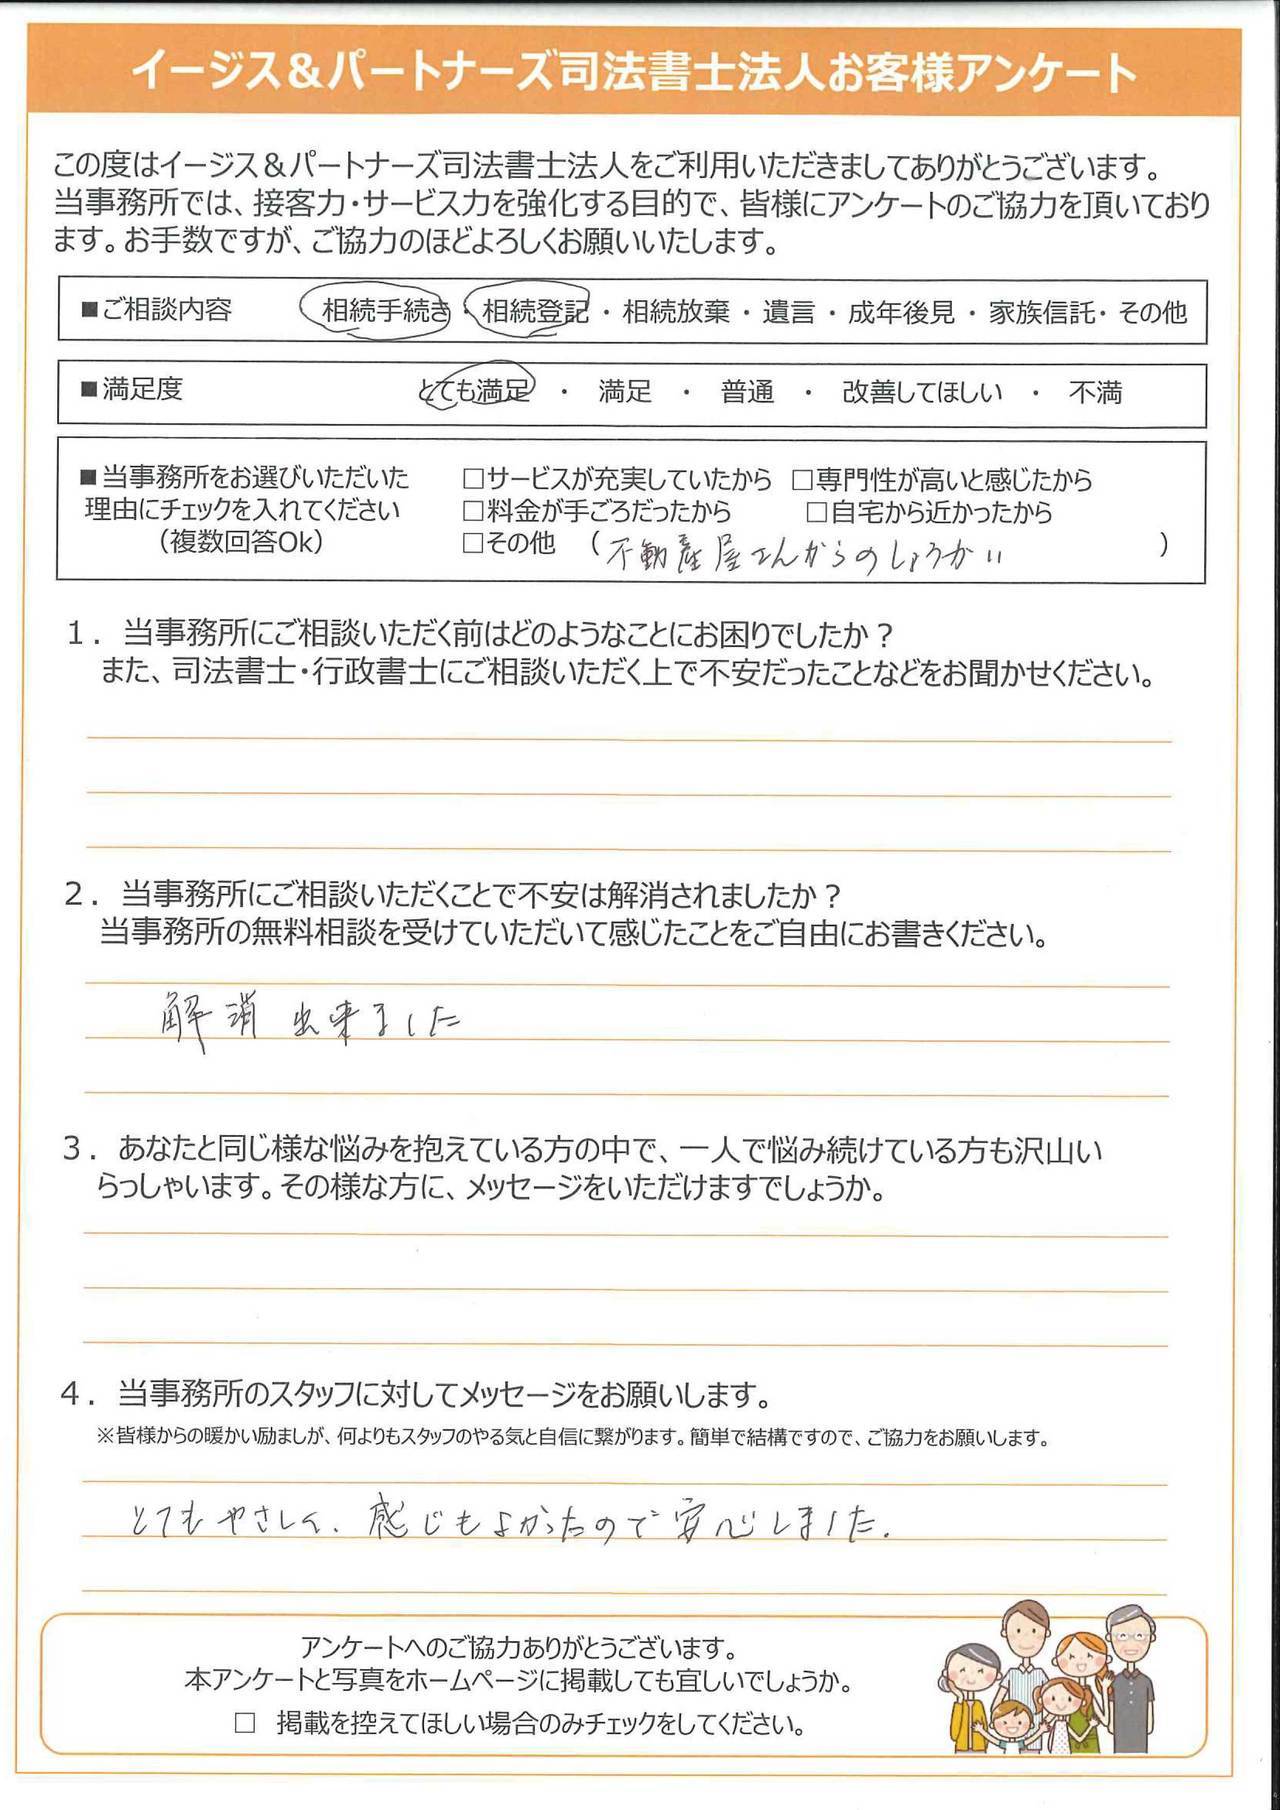 イージス＆パートナーズ司法書士法人お客様アンケート
この度はイージス＆パートナーズ司法書士法人をご利用いただきましてありがとうございます。
当事務所では、接客力・サービス力を強化する目的で、皆様にアンケートのご協力を頂いており
ます。お手数ですが、ご協力のほどよろしくお願いいたします。
■ご相談内容　相続手続き・相続登記・相続放棄・遺言・成年後見・家族信託・その他
■満足度　とても満足・満足・普通・改善してほしい・不満
■当事務所をお選びいただいた　□サービスが充実していたから　□専門性が高いと感じたから
理由にチェックを入れてください　□料金が手ごろだったから　□自宅から近かったから
（複数回答Ok）　□その他（不動産屋さんからのしょうかい）
１．当事務所にご相談いただく前はどのようなことにお困りでしたか？
また、司法書士・行政書士にご相談いただく上で不安だったことなどをお聞かせください。
２．当事務所にご相談いただくことで不安は解消されましたか？
当事務所の無料相談を受けていただいて感じたことをご自由にお書きください。
解消出来ました
３．あなたと同じ様な悩みを抱えている方の中で、一人で悩み続けている方も沢山い
らっしゃいます。その様な方に、メッセージをいただけますでしょうか。
４．当事務所のスタッフに対してメッセージをお願いします。
※皆様からの暖かい励ましが、何よりもスタッフのやる気と自信に繋がります。簡単で結構ですので、ご協力をお願いします。
とてもやさしく、感じもよかったので安心しました。
アンケートへのご協力ありがとうございます。
本アンケートと写真をホームページに掲載しても宜しいでしょうか。
□　掲載を控えてほしい場合のみチェックをしてください。